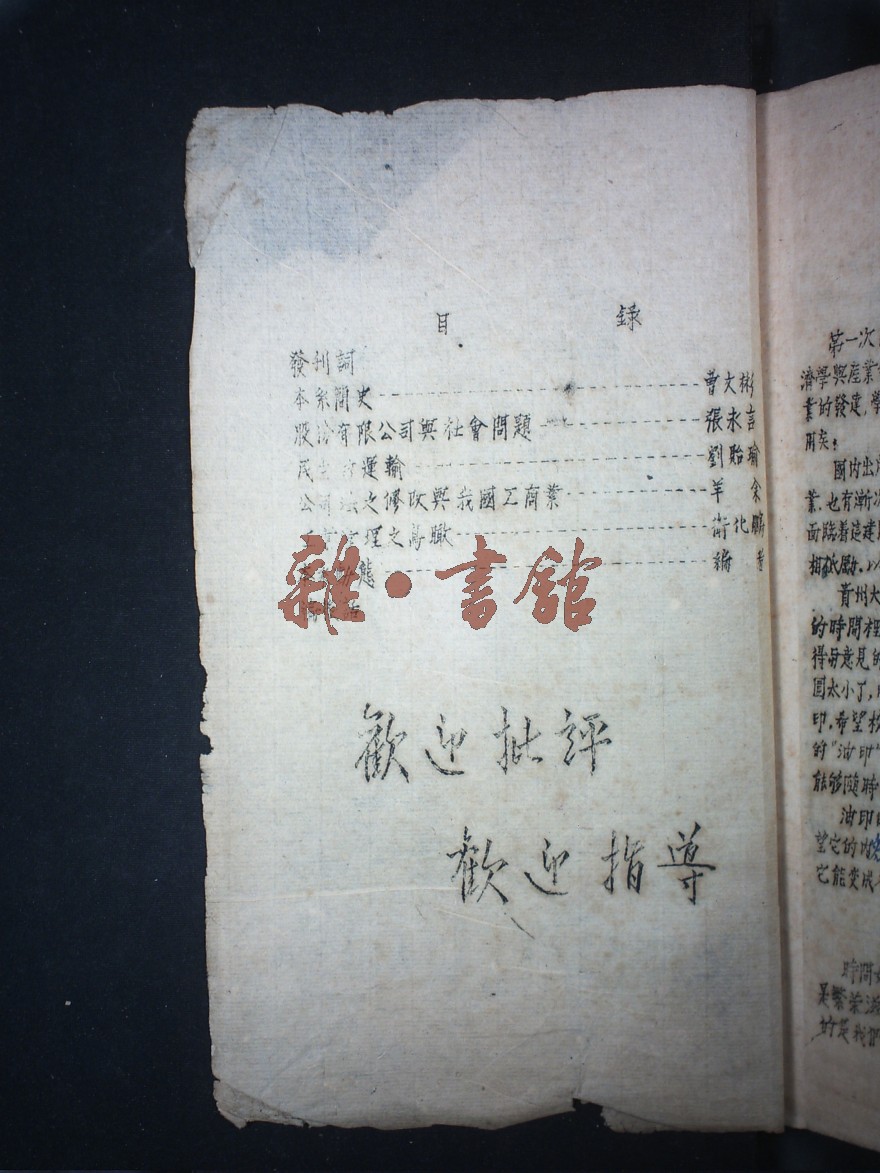 目 錄
發刊詞
本系簡史 曹文彬
股份有限公司與社會問題 張永言
運輸 劉貽瑜
公司法之修改與我國工商業 羊余
管理之鳥瞰 衛北鵬
態 編者
雜·書館
歡迎批評
歡迎指導
第一次
濟學與產業
業的發建,學
用矣:
國內出
業,也有漸次
面臨着造建
相砥勵,以
貴州大
的時間裡
得母意見的
圓太小了,
印,希望校
的"油印"
能夠隨時
油印
望它的內
它能变成
時間
是繁荣
的是我們